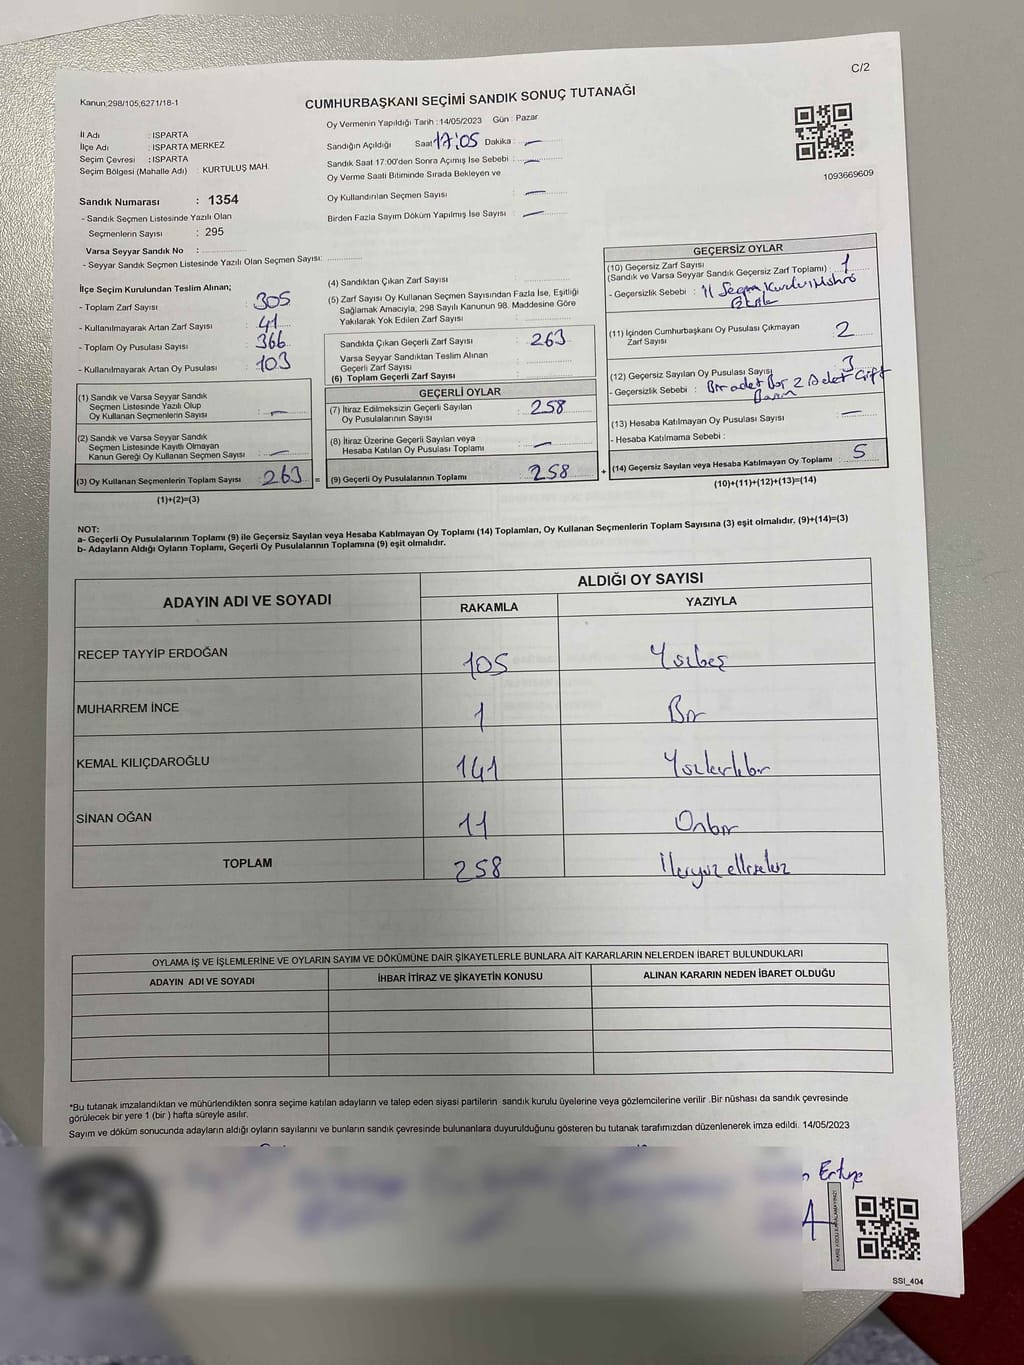 C/2
Kanun;298/105,6271/18-1
CUMHURBAŞKANI SEÇİMİ SANDIK SONUÇ TUTANAĞI
İl Adı : ISPARTA
İlçe Adı : ISPARTA MERKEZ
Seçim Çevresi : ISPARTA
Seçim Bölgesi (Mahalle Adı) : KURTULUŞ MAH.
Sandık Numarası : 1354
- Sandık Seçmen Listesinde Yazılı Olan
Seçmenlerin Sayısı : 295
Varsa Seyyar Sandık No :
- Seyyar Sandık Seçmen Listesinde Yazılı Olan Seçmen Sayısı:
Oy Vermenin Yapıldığı Tarih : 14/05/2023 Gün : Pazar
Sandığın Açıldığı Saat 17:05 Dakika : —
Sandık Saat 17:00'den Sonra Açımış İse Sebebi : —
Oy Verme Saati Bitiminde Sırada Bekleyen ve
Oy Kullandırılan Seçmen Sayısı : —
Birden Fazla Sayım Döküm Yapılmış İse Sayısı : —
1093669609
İlçe Seçim Kurulundan Teslim Alınan;
- Toplam Zarf Sayısı : 305
- Kullanılmayarak Artan Zarf Sayısı : 41
- Toplam Oy Pusulası Sayısı : 366
- Kullanılmayarak Artan Oy Pusulası : 103
(1) Sandık ve Varsa Seyyar Sandık
Seçmen Listesinde Yazılı Olup
Oy Kullanan Seçmenlerin Sayısı : —
(2) Sandık ve Varsa Seyyar Sandık
Seçmen Listesinde Kayıtlı Olmayan
Kanun Gereği Oy Kullanan Seçmen Sayısı : —
(3) Oy Kullanan Seçmenlerin Toplam Sayısı : 263
(1)+(2)=(3)
(4) Sandıktan Çıkan Zarf Sayısı :
(5) Zarf Sayısı Oy Kullanan Seçmen Sayısından Fazla İse, Eşitliği
Sağlamak Amacıyla; 298 Sayılı Kanunun 98. Maddesine Göre
Yakılarak Yok Edilen Zarf Sayısı :
Sandıkta Çıkan Geçerli Zarf Sayısı : 263
Varsa Seyyar Sandıktan Teslim Alınan
Geçerli Zarf Sayısı :
(6) Toplam Geçerli Zarf Sayısı :
GEÇERLİ OYLAR
(7) İtiraz Edilmeksizin Geçerli Sayılan
Oy Pusulalarının Sayısı : 258
(8) İtiraz Üzerine Geçerli Sayılan veya
Hesaba Katılan Oy Pusulası Toplamı : —
= (9) Geçerli Oy Pusulalarının Toplamı : 258
GEÇERSİZ OYLAR
(10) Geçersiz Zarf Sayısı
(Sandık ve Varsa Seyyar Sandık Geçersiz Zarf Toplamı) : 1
- Geçersizlik Sebebi : İl Seçim Kurulu Mührü
(11) İçinden Cumhurbaşkanı Oy Pusulası Çıkmayan
Zarf Sayısı : 2
(12) Geçersiz Sayılan Oy Pusulası Sayısı : 3
- Geçersizlik Sebebi : Bir adet Boş 2 Adet Çift
(13) Hesaba Katılmayan Oy Pusulası Sayısı : —
- Hesaba Katılmama Sebebi :
+ (14) Geçersiz Sayılan veya Hesaba Katılmayan Oy Toplamı : 5
(10)+(11)+(12)+(13)=(14)
NOT:
a- Geçerli Oy Pusulalarının Toplamı (9) ile Geçersiz Sayılan veya Hesaba Katılmayan Oy Toplamı (14) Toplamları, Oy Kullanan Seçmenlerin Toplam Sayısına (3) eşit olmalıdır. (9)+(14)=(3)
b- Adayların Aldığı Oyların Toplamı, Geçerli Oy Pusulalarının Toplamına (9) eşit olmalıdır.
ADAYIN ADI VE SOYADI
ALDIĞI OY SAYISI
RAKAMLA YAZIYLA
RECEP TAYYİP ERDOĞAN 105 Yüzbeş
MUHARREM İNCE 1 Bir
KEMAL KILIÇDAROĞLU 141 Yüzkırkbir
SİNAN OĞAN 11 Onbir
TOPLAM 258 İkiyüzellisekiz
OYLAMA İŞ VE İŞLEMLERİNE VE OYLARIN SAYIM VE DÖKÜMÜNE DAİR ŞİKAYETLERLE BUNLARA AİT KARARLARIN NELERDEN İBARET BULUNDUKLARI
ADAYIN ADI VE SOYADI İHBAR İTİRAZ VE ŞİKAYETİN KONUSU ALINAN KARARIN NEDEN İBARET OLDUĞU
*Bu tutanak imzalandıktan ve mühürlendikten sonra seçime katılan adayların ve talep eden siyasi partilerin sandık kurulu üyelerine veya gözlemcilerine verilir .Bir nüshası da sandık çevresinde
görülecek bir yere 1 (bir ) hafta süreyle asılır.
Sayım ve döküm sonucunda adayların aldığı oyların sayılarını ve bunların sandık çevresinde bulunanlara duyurulduğunu gösteren bu tutanak tarafımızdan düzenlenerek imza edildi. 14/05/2023
SSI_404